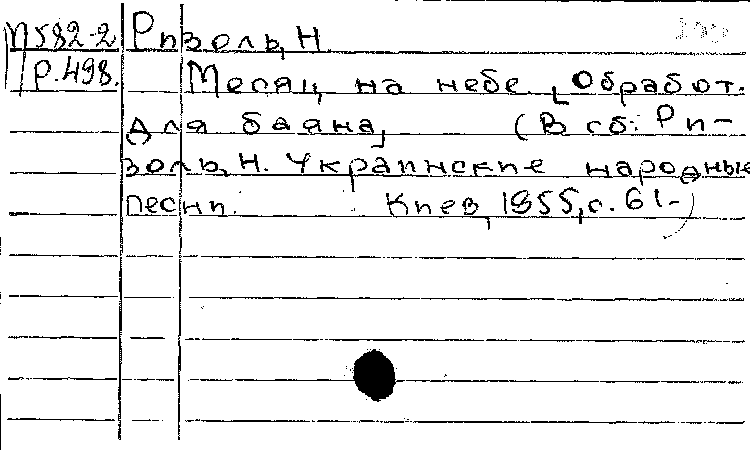 П582-2 Ризоль, Н.
Р.498. Месяц на небе. [Обработ.
для баяна] (В сб: Ри-
золь, Н. Украинские народные
песни. Киев, 1955, с. 61-)